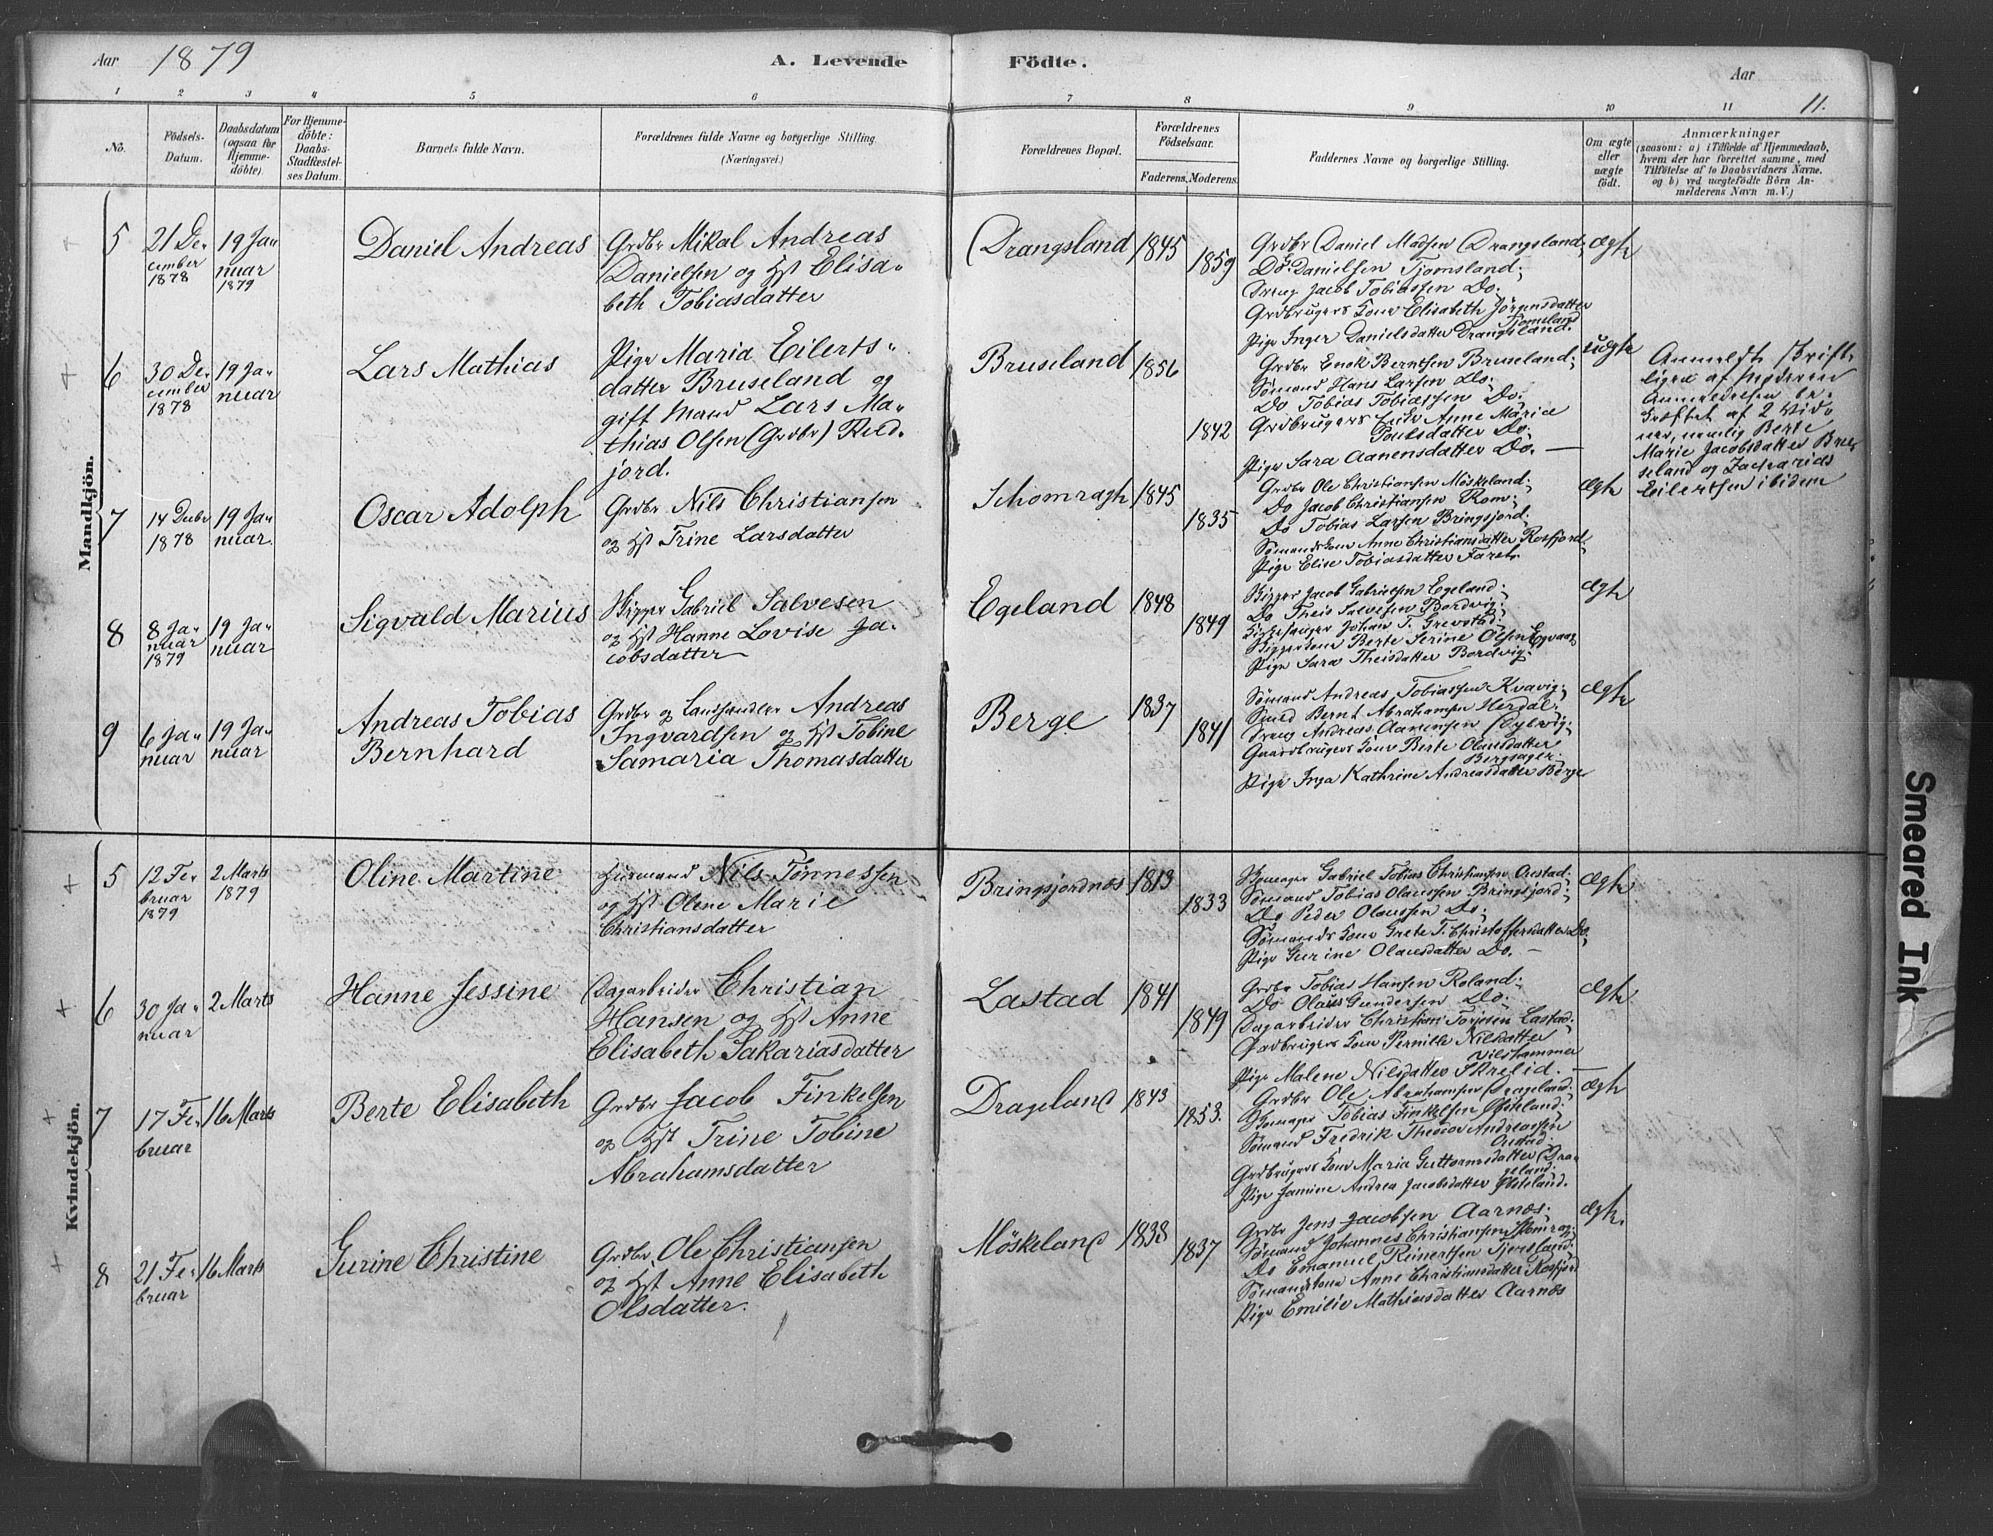 Aar 1879
A. Levende Födte.
Aar
11.
1 2 3 4 5 6 7 8 9 10 11
No.
Födsels-
Datum.
Daabsdatum
(ogsaa for
Hjemme-
döbte).
For Hjemme-
döbte:
Daabs-
Stadfæstel-
ses Datum.
Barnets fulde Navn.
Forældrenes fulde Navne og borgerlige Stilling
(Næringsvei.)
Forældrenes Bopæl.
Forældrenes
Födselsaar.
Faderens. Moderens.
Faddernes Navne og borgerlige Stilling.
Om ægte
eller
uægte
födt.
Anmærkninger
(saasom: a) i Tilfælde af Hjemmedaab,
hvem der har forrettet samme, med
Tilföielse af to Daabsvidners Navne.
og b) ved uægtefödte Börn An-
melderens Navn m. V.)
Mandkjön.
5
21 De-
cember
1878
19 Ja-
nuar
1879
Daniel Andreas
Grdbr Mikal Andreas
Danielsen og Hst Elisa-
beth Tobiasdatter
Drangsland
1845
1859
Grdbr Daniel Madsen Drangsland;
Do Danielsen Tjomsland;
Dreng Jacob Tobiassen Do.
Grdbrugers Kone Elisabeth Jörgensdatter
Tjomsland
Pige Inger Danielsdatter Drangsland.
Ægte
6
30 De-
cember
1878
19 Ja-
nuar
Lars Mathias
Pige Maria Eilerts-
datter Bruseland og
gift Mand Lars Ma-
thias Olsen (Grdbr)
jord.
Bruseland
1856
1842
Grdbr Enok Berntsen Bruseland;
Sømand Hans Larsen Do;
Do Tobias Tobiassen Do;
Grdbrugers Enke Anne Maria
Do;
Pige Sara Aanensdatter Do.
Uægte
Anmeldt skrift-
ligen af Moderen
Anmeldelsen be-
kræftet af 2 Vid-
ner, nemlig Berte
Marie Jacobsdatter Bru-
seland og Zacharias
Eilertsen ibidem
7
14 Decbr
1878
19 Ja-
nuar.
Oscar Adolph
Grdbr Nils Christiansen
og Hst Trine Larsdatter
Schomragh
1845
1835
Grdbr Ole Christiansen Møskeland;
Do Jacob Christiansen Rom;
Do Tobias Larsen Bringsjord;
Sømands Kone Anne Christiansdatter Rosfjord
Pige Elise Tobiasdatter
Ægte
8
8 Ja-
nuar
1879
19 Ja-
nuar
Sigvald Marius
Skipper Gabriel Salvesen
og Hst Hanne Lovise Ja-
cobsdatter
Egeland
1848
1849
Skipper Jacob Gabrielsen Egeland;
Do Theis Salvesen Bordvig;
Kirkesanger Johan T. Grevstad;
Skipperkone Berte Serine Olsen
Pige Sara Theisdatter Bordvig
Ægte
9
6 Ja-
nuar
19 Ja-
nuar
Andreas Tobias
Bernhard
Grdbr og Landhandler Andreas
Ingvardsen og Hst Tobine
Samaria Thomasdatter
Berge
1837
1841
Sømand Andreas Tobiassen Kvavig;
Smed Bernt Abrahamsen Herdal;
Dreng Andreas Aanensen
Gaardbrugers Kone Berte Olausdatter
Bergsager;
Pige Inga Kathrine Andreasdatter Berge
Ægte
Kvindekjön.
5
12 Fe-
bruar
1879
2 Marts
1879
Oline Martine
Huusmand Nils Tønnessen
og Hst Olene Marie
Christiansdatter
Bringsjordnæs
1813
1833
Gabriel Tobias Christiansen
Sømand Tobias Olaussen Bringsjord;
Do Peder Olaussen Do;
Sømands Kone Grete T. Christoffersdatter Do,
Pige Gurine Olausdatter Do.
Ægte
6
30 Ja-
nuar
2 Marts
Hanne Jessine
Dagarbeider Christian
Hansen og Hst Anne
Elisabeth Sakariasdatter
Lastad
1841
1849
Grdbr Tobias Hansen Roland;
Do Olaus Gundersen Do;
Dagarbeider Christian Torjusen Lastad;
Gaardbrugers Kone Pernille Nilsdatter
Vilshammer
Pige Malene Nilsdatter
Ægte
7
17 Fe-
bruar
16 Marts
Berte Elisabeth
Grdbr Jacob Finkelsen
og Hst Trine Tobine
Abrahamsdatter
Drageland
1843
1853.
Grdbr Ole Abrahamsen Drageland;
Tobias Finkelsen Østeland;
Sømand Fredrik Theodor Andreassen
Grdbrugers Kone Maria Guttormsdatter Dra-
geland;
Pige Jamine Andrea Jacobsdatter Østeland.
Ægte
8
21 Fe-
bruar
16 Marts
Gurine Christine
Grdbr Ole Christiansen
og Hst Anne Elisabeth
Olsdatter.
Møskeland
1838
1837
Grdbr Jens Jacobsen Aarnæs;
Sømand Johannes Christiansen
Do Emanuel Reinertsen
Sømandskone Anne Christiansdatter Rosfjord
Pige Emilie Mathiasdatter Aarnæs
Ægte.
Smeared Ink